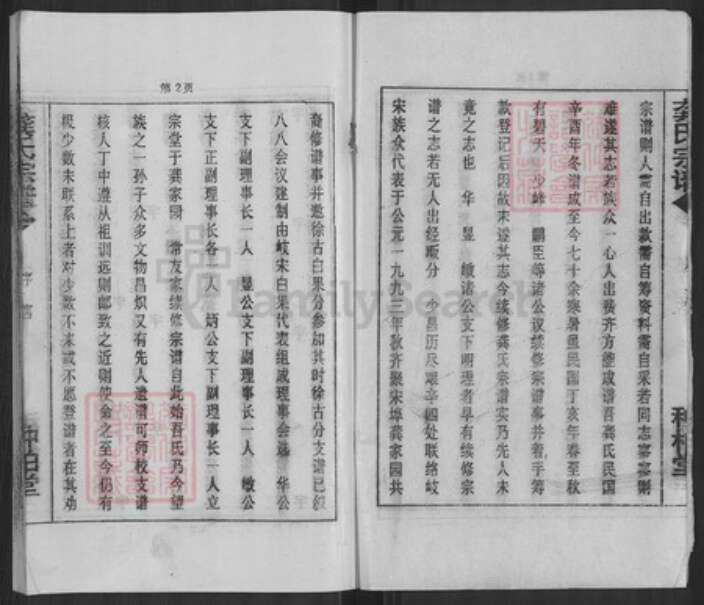 宗谱则人需自出款需自筹资料需自采若同志寥寥则
难遂其志若族众一心人出赀齐方能成谱吾龚氏民国
辛酉年冬谱成至今七十余寒暑虽民国丁亥年春至秋
有碧天 少峰 鹏臣等诸公议续修宗谱事并着手筹
款登记后因故未遂其志今续修龚氏宗谱实乃先人未
竟之志也 华 昱 缴诸公支下明理者早有续修宗
谱之志若无人出经 分 少昌历尽艰辛四处联络岐
宋族众代表于公元一九九三年救齐聚宋埠龚家园共
龚氏宗谱
种柏堂
第2页
裔修谱事并邀徐古白果分参加其时徐古分支谱已叙
八八会议建制由岐宋白果代表组成理事会选 华公
支下副理事长一人 昱公支下副理事长一人 缴公
支下正副理事长各一人 炳公支下副理事长一人立
宗堂于龚家园 常友家续修宗谱自此始吾氏乃今望
族之一孙子众多文物昌炽又有先人遗谱可师校支谱
核人丁中遵从祖训远则邮致之近则使命之至今仍有
极少数未联系上者对少数不来或不愿登谱者在其劝
龚氏宗谱
种柏堂
FamilySearch